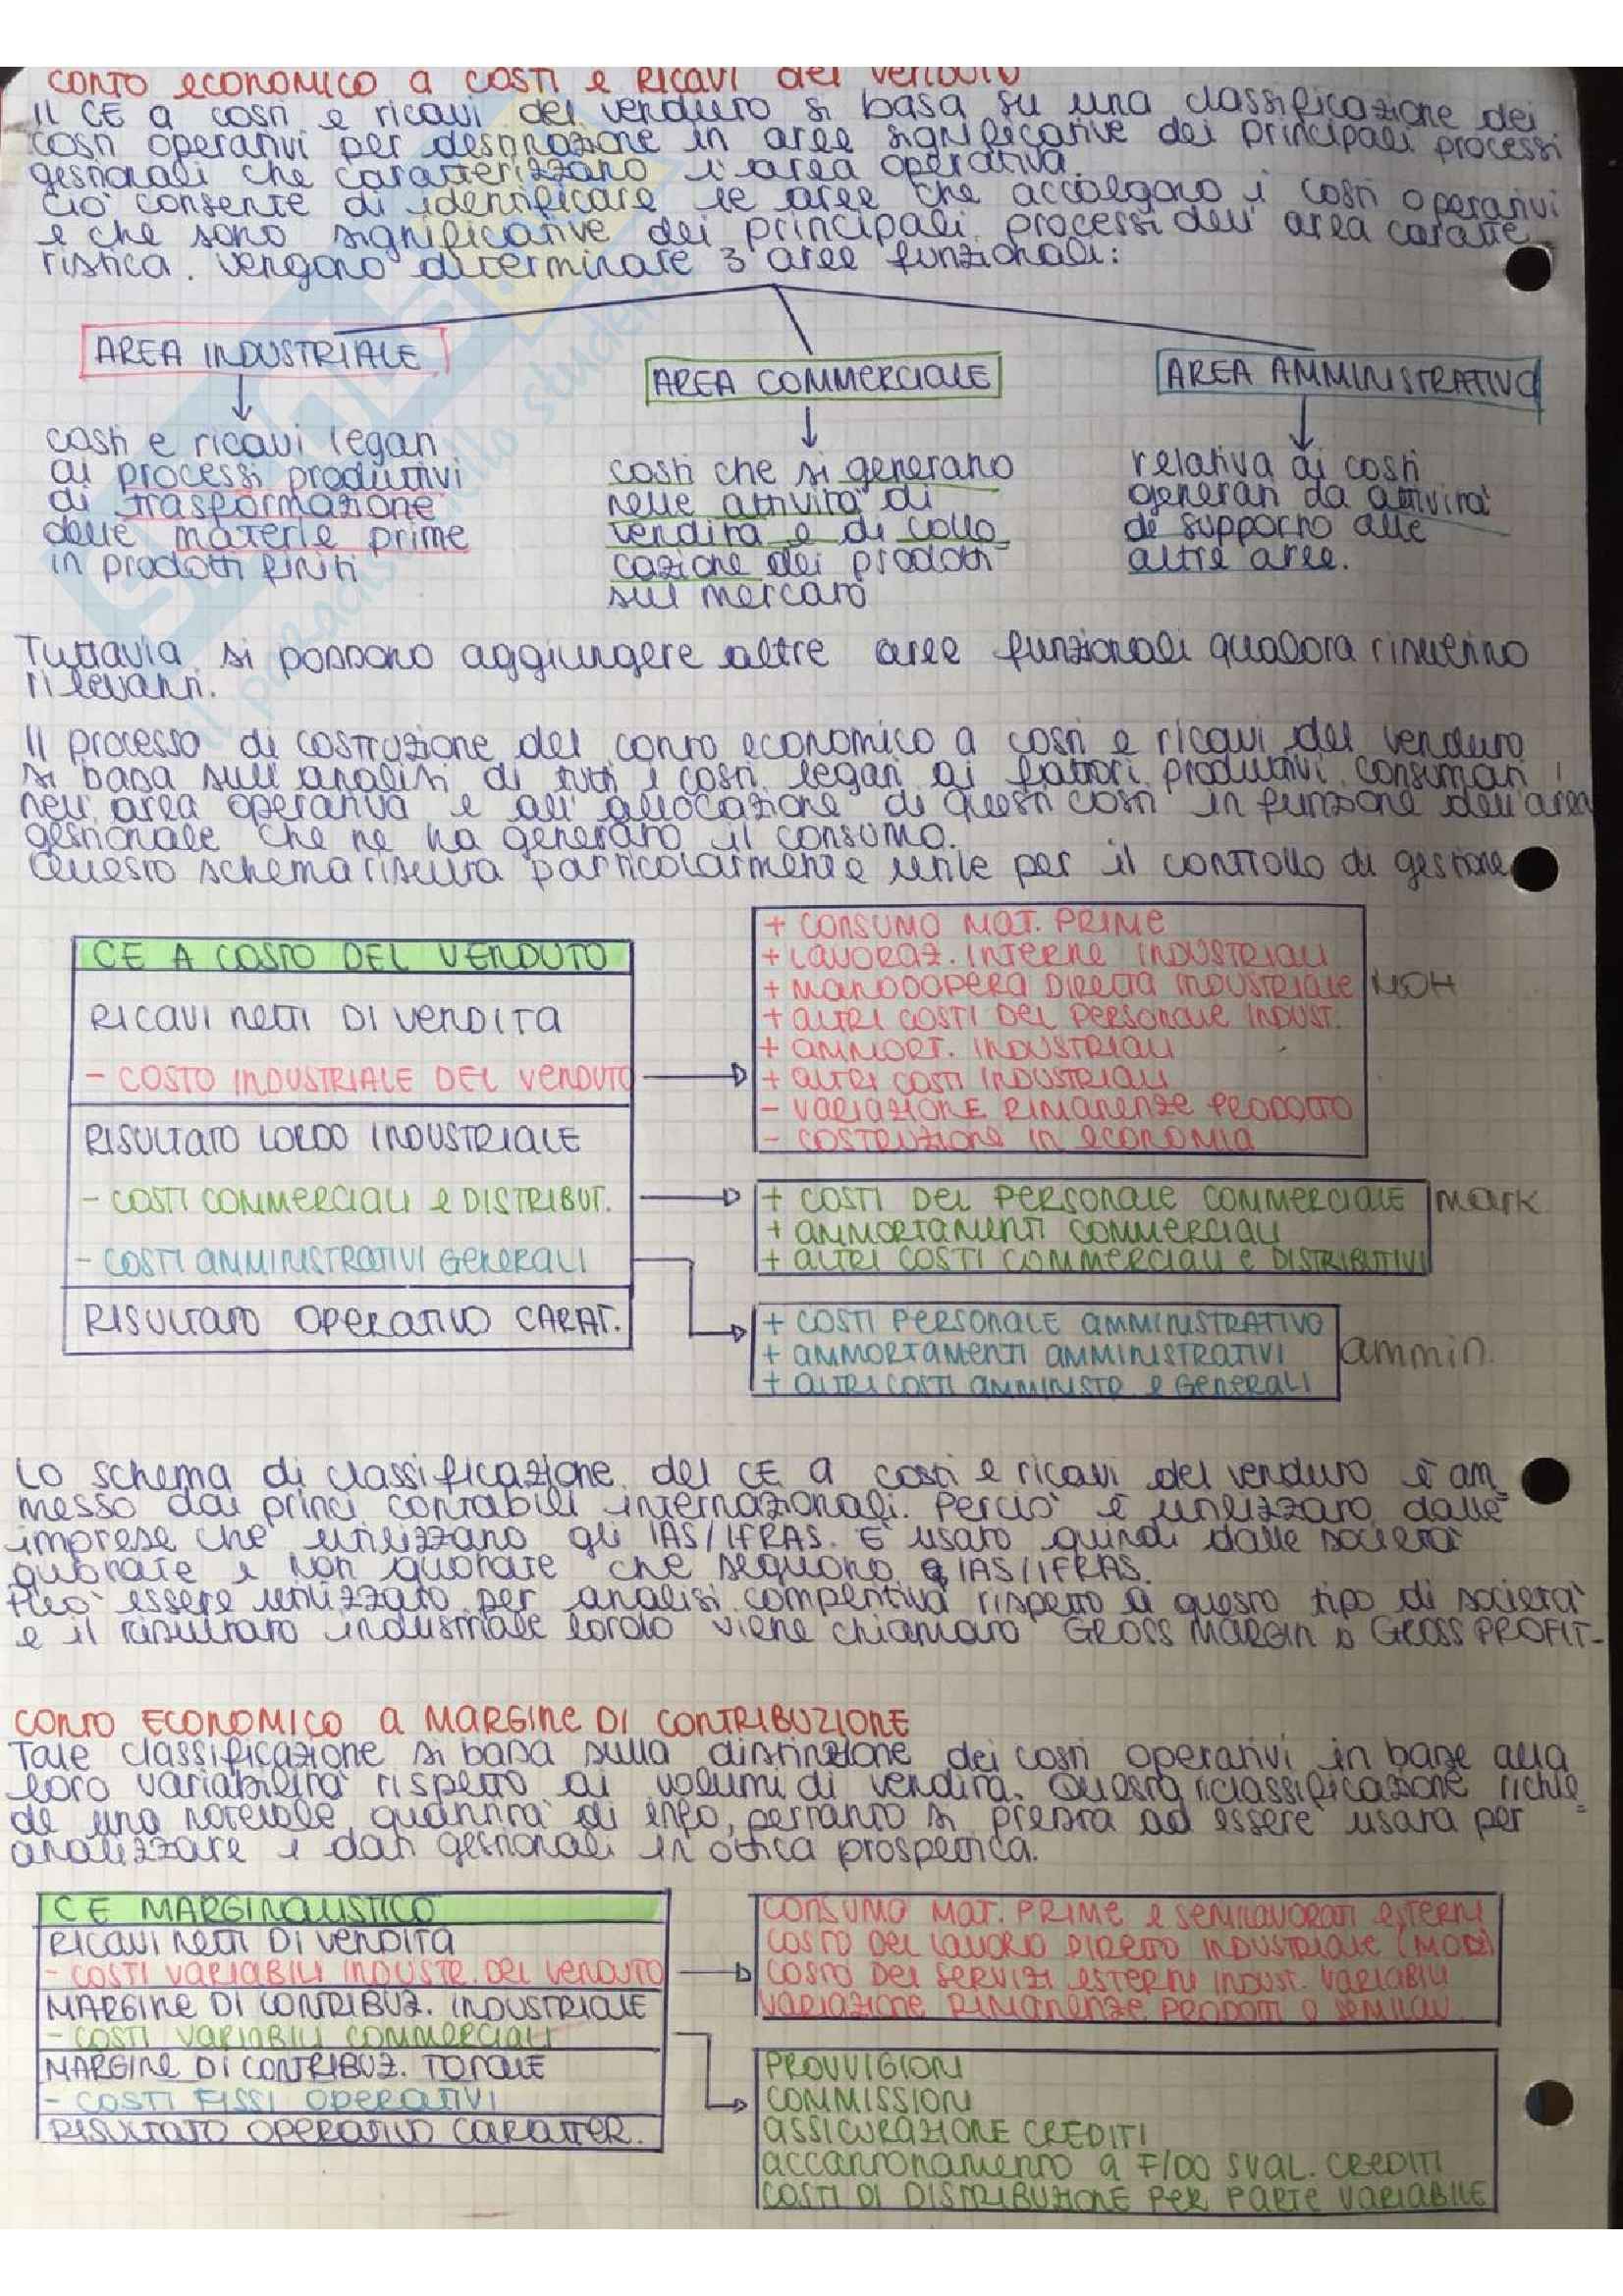 CONTO ECONOMICO A COSTI E RICAVI DEL VENDUTO
Il CE a costi e ricavi del venduto si basa su una classificazione dei
costi operativi per destinazione in aree significative dei principali processi
gestionali che caratterizzano l'area operativa.
Ciò consente di identificare le aree che accolgono i costi operativi
e che sono significative dei principali processi dell'area caratte
ristica. Vengono determinate 3 aree funzionali:
AREA INDUSTRIALE
AREA COMMERCIALE
AREA AMMINISTRATIVA
costi e ricavi legati
ai processi produttivi
di trasformazione
delle materie prime
in prodotti finiti
costi che si generano
nelle attività di
vendita e di collo
cazione dei prodotti
sul mercato
relativa ai costi
generati da attività
di supporto alle
altre aree.
Tuttavia si possono aggiungere altre aree funzionali qualora risultino
rilevanti.
Il processo di costruzione del conto economico a costi e ricavi del venduto
si basa sull'analisi di tutti i costi legati ai fattori produttivi consumati
nell'area operativa e all'allocazione di questi costi in funzione dell'area
gestionale che ne ha generato il consumo.
Questo schema risulta particolarmente utile per il controllo di gestione
CE A COSTO DEL VENDUTO
RICAVI NETTI DI VENDITA
- COSTO INDUSTRIALE DEL VENDUTO
RISULTATO LORDO INDUSTRIALE
- COSTI COMMERCIALI e DISTRIBUT.
- COSTI AMMINISTRATIVI GENERALI
RISULTATO OPERATIVO CARAT.
+ CONSUMO MAT. PRIME
+ LAVORAZ. INTERNE INDUSTRIALI
+ MANODOPERA DIRETTA INDUSTRIALE
+ ALTRI COSTI DEL PERSONALE INDUST.
+ AMMORT. INDUSTRIALI
+ ALTRI COSTI INDUSTRIALI
- VARIAZIONE RIMANENZE PRODOTTO
- COSTRUZIONE IN ECONOMIA
+ COSTI DEL PERSONALE COMMERCIALE
+ AMMORTAMENTI COMMERCIALI
+ ALTRI COSTI COMMERCIALI E DISTRIBUTIVI
mark
+ COSTI PERSONALE AMMINISTRATIVO
+ AMMORTAMENTI AMMINISTRATIVI
+ ALTRI COSTI AMMINISTR e GENERALI
ammin.
Lo schema di classificazione del CE a costi e ricavi del venduto è am
messo dai princi contabili internazionali. Perciò è utilizzato dalle
imprese che utilizzano gli IAS/IFRAS. È usato quindi dalle società
quotate e non quotate che seguono IAS/IFRAS.
Può essere utilizzato per analisi competitiva rispetto a questo tipo di società
e il risultato industriale lordo viene chiamato GROSS MARGIN o GROSS PROFIT-
CONTO ECONOMICO A MARGINE DI CONTRIBUZIONE
Tale classificazione si basa sulla distinzione dei costi operativi in base alla
loro variabilità rispetto ai volumi di vendita. Questa riclassificazione richie
de una notevole quantità di info, pertanto si presta ad essere usata per
analizzare i dati gestionali in ottica prospettica.
CE MARGINALISTICO
RICAVI NETTI DI VENDITA
- COSTI VARIABILI INDUSTR. DEL VENDUTO
MARGINE DI CONTRIBUZ. INDUSTRIALE
- COSTI VARIABILI COMMERCIALI
MARGINE DI CONTRIBUZ. TOTALE
- COSTI FISSI OPERATIVI
RISULTATO OPERATIVO CARATTER.
CONSUMO MAT. PRIME e SEMILAVORATI ESTERNI
COSTO DEL LAVORO DIRETTO INDUSTRIALE (MOD)
COSTO DEI SERVIZI ESTERNI INDUST. VARIABILI
VARIAZIONE RIMANENZE PRODOTTI e SEMILAV.
PROVVIGIONI
COMMISSIONI
ASSICURAZIONE CREDITI
ACCANTONAMENTO A F/DO SVAL. CREDITI
COSTI DI DISTRIBUZIONE PER PARTE VARIABILE